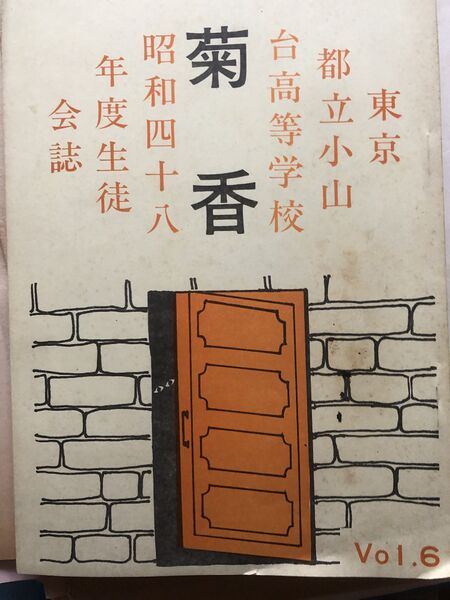 東京
都立小山
台高等学校
菊香
昭和四十八
年度生徒
会誌
Vol.6